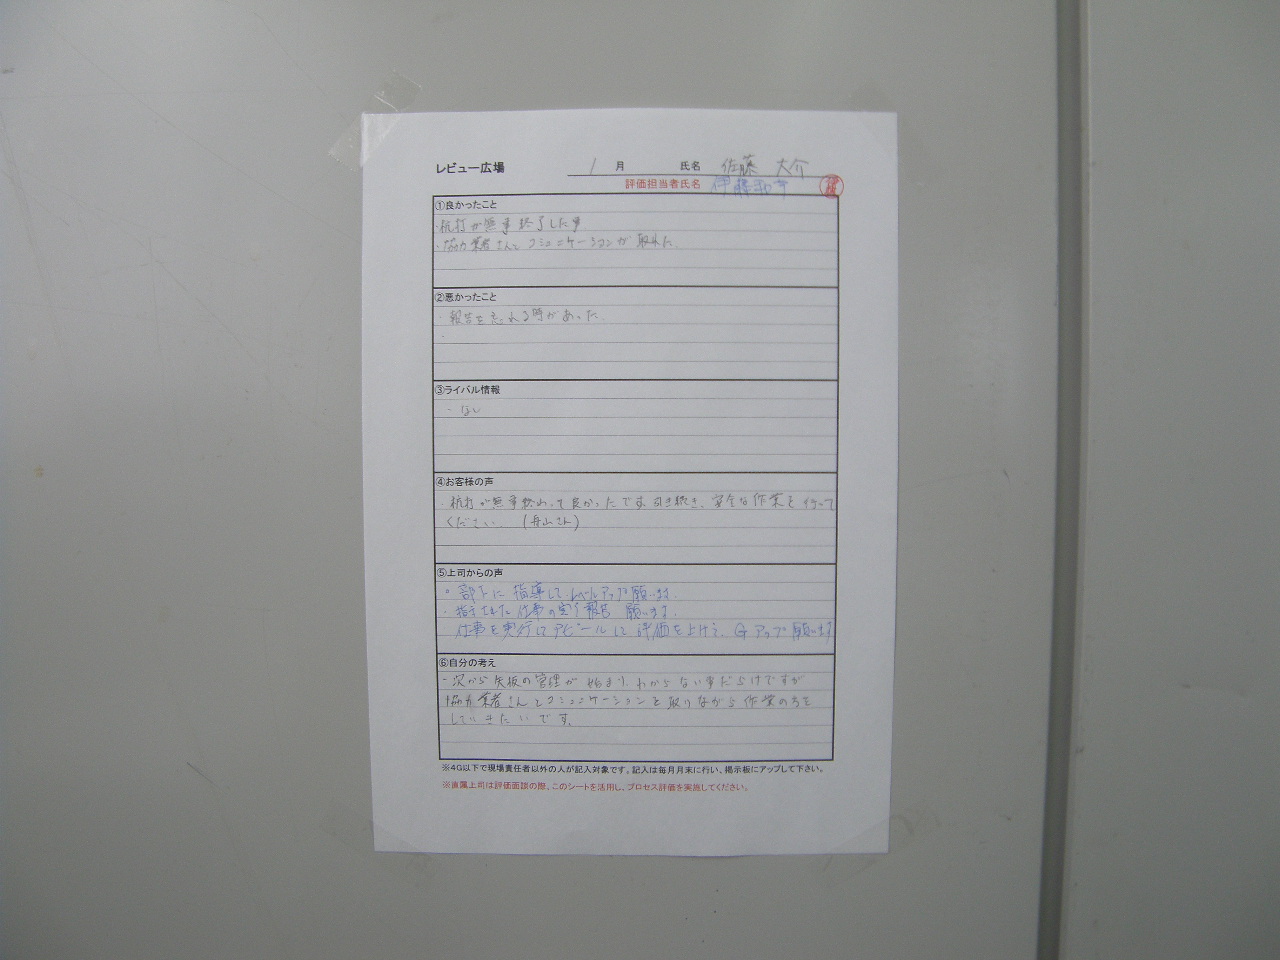 レビュー広場 1 月 氏名 佐藤 大介
評価担当者氏名 伊藤
①良かったこと
・杭打が無事終了した事
・協力業者さんとコミュニケーションが取れた
②悪かったこと
・報告を忘れる時があった。
③ライバル情報
・なし
④お客様の声
・杭打が無事終わって良かったです。引き続き、安全な作業を行って
ください (舟山さん)
⑤上司からの声
・部下に指導してレベルアップ願います。
・指示された仕事の実行報告 願います。
仕事を実行してアピールして評価を上げて、Gアップ願います
⑥自分の考え
・次から矢板の管理が始まり、わからない事だらけですが
協力業者さんとコミュニケーションを取りながら作業を
していきたいです。
※4G以下で現場責任者以外の人が記入対象です。記入は毎月月末に行い、掲示板にアップして下さい。
※直属上司は評価面談の際、このシートを活用し、プロセス評価を実施してください。